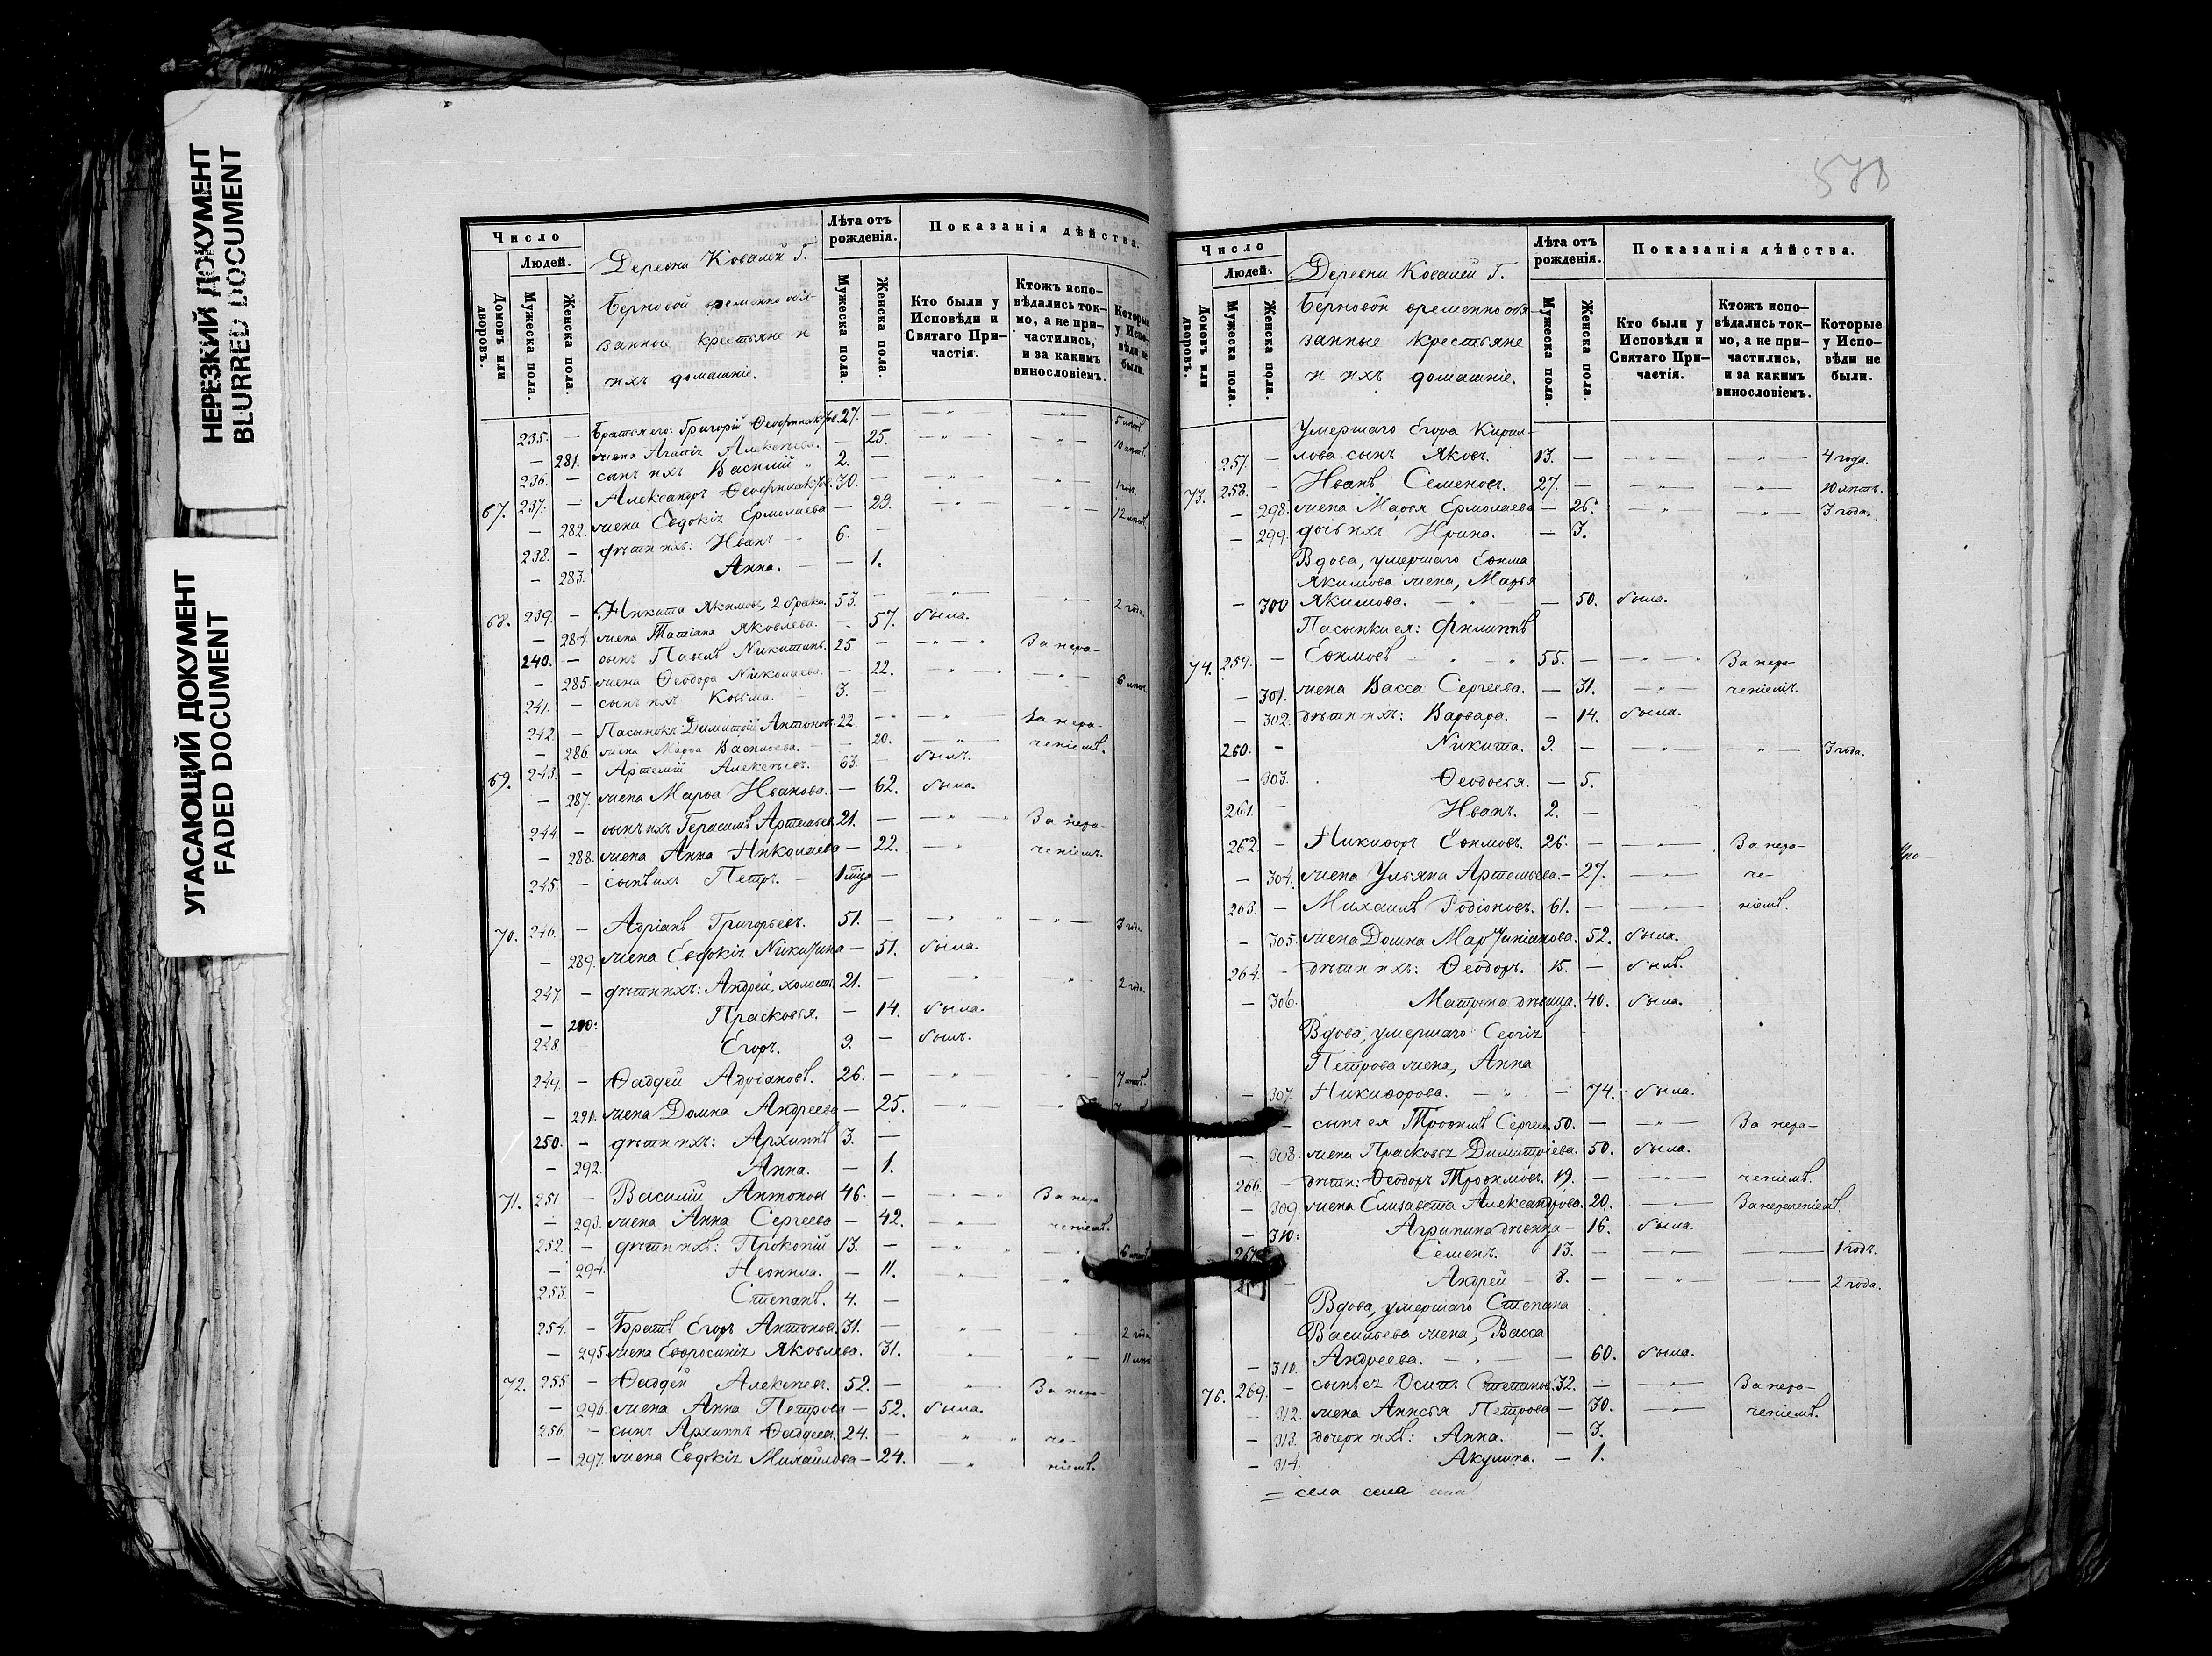 НЕРЕЗКИЙ ДОКУМЕНТ
BLURRED DOCUMENT
УГАСАЮЩИЙ ДОКУМЕНТ
FADED DOCUMENT
Число
Людей.
Домовъ или дворовъ.
Мужеска пола.
Женска пола.
Деревни Ковалей Г.
Берновой временно обя-
занные крестьяне и
ихъ домашніе.
Лѣта отъ рожденія.
Мужеска пола.
Женска пола.
Показанія дѣйства.
Кто были у Исповѣди и Святаго При-частія.
Ктожъ испо-вѣдались ток-мо, а не при-частились, и за какимъ винословіемъ.
Которые у Испо-вѣди не были.
235. — Братья его: Григорій Ѳеофилактов. 27. — 5 лѣтъ.
— 281. жена Агапія Алексѣева. — 25. 10 лѣтъ.
236. — сынъ ихъ Василій 2. —
67. 237. — Александръ Ѳеофилактов. 30. — 1 годъ.
— 282. жена Евдокія Ермолаева — 29. 12 лѣтъ.
238. — дѣти ихъ: Иванъ 6. —
— 283. Анна. — 1.
68. 239. — Никита Якимовъ, 2 брака. 53. — 2 года.
— 284. жена Татіана Яковлева. — 57. была.
240. — сынъ Павелъ Никитинъ. 25. — За нера-
— 285. жена Ѳеодора Николаева. — 22. 6 лѣтъ.
241. — сынъ ихъ Козьма. 3. —
242. — Пасынокъ Димитрій Антоновъ. 22. — За нера-
— 286. жена Марѳа Васильева. — 20. ченіемъ.
69. 243. — Артемій Алексѣевъ. 63. — былъ.
— 287. жена Марѳа Иванова. — 62. была.
244. — сынъ ихъ Герасимъ Артемьев. 21. — За нера-
— 288. жена Анна Николаева — 22. ченіемъ.
245. — сынъ ихъ Петръ. —
70. 246. — Адріанъ Григорьевъ. 51. — 3 года.
— 289. жена Евдокія Никитина — 51. была.
247. — дѣти ихъ: Андрей, холостъ. 21. — 2 года.
— 290. Прасковья. — 14. была.
248. — Егоръ. 9. — былъ.
249. — Ѳаддей Адріановъ. 26. — 7 лѣтъ.
— 291. жена Домна Андреева — 25.
250. — дѣти ихъ: Архиппъ 3. —
— 292. Анна. — 1.
71. 251 — Василій Антонов 46. — За нера
— 293. жена Анна Сергеева — 42. ченіемъ.
252. — дѣти ихъ: Прокопій 13. — 6 лѣтъ
— 294. Неонила. — 11.
253. — Степанъ. 4. —
254. — Братъ Егоръ Антонов. 31. — 2 года
— 295 жена Евфросинія Яковлева. 31. 11 лѣтъ
72. 255 — Ѳаддей Алексѣевъ. 52. — За нера-
— 296. жена Анна Петрова — 52. была.
256. — сынъ Архиппъ Ѳаддеев. 24. — че-
— 297. жена Евдокія Михайлова — 24. ніемъ.
Число
Людей.
Домовъ или дворовъ.
Мужеска пола.
Женска пола.
Деревни Ковалей Г.
Берновой временно обя-
занные крестьяне
и ихъ домашніе.
Лѣта отъ рожденія.
Мужеска пола.
Женска пола.
Показанія дѣйства.
Кто были у Исповѣди и Святаго При-частія.
Ктожъ испо-вѣдались ток-мо, а не при-частились, и за какимъ винословіемъ.
Которые у Испо-вѣди не были.
Умершаго Егора Кирил-
257. — лова сынъ Яковъ. 13. — 4 года.
73. 258. — Иванъ Семеновъ. 27. — 10 лѣтъ.
— 298. жена Марья Ермолаева — 26. 3 года.
— 299. дочь ихъ Ирина. — 3.
Вдова, умершаго Еѳима
Якимова жена, Марья
— 300 Якимова. — 50. была.
Пасынки ея: Филиппъ
74. 259. — Еѳимовъ 55. — За нера-
— 301. жена Васса Сергеева. — 31. ченіемъ.
— 302. дѣти ихъ: Варвара. — 14. была.
260. — Никита. 9. — 3 года.
— 303. Ѳеодосья. — 5.
261. — Иванъ. 2. —
262. — Никифоръ Еѳимовъ. 26. — За нера-
— 304. жена Ульяна Артемьева. — 27. че-
263. — Михаилъ Родіоновъ. 61. — ніемъ.
— 305. жена Домна Мартиніанова. 52. была.
264. — дѣти ихъ: Ѳеодоръ. 15. — былъ.
— 306. Матрена дѣвица. 40. была.
Вдова, умершаго Сергія
Петрова жена, Анна
— 307. Никифорова. — 74. была.
— сынъ ея Трофимъ Сергеев. 50. — За нера-
— 308. жена Прасковья Димитріева. 50. была.
266. — дѣти: Ѳеодоръ Трофимовъ. 19. — ченіемъ.
— 309. жена Елизавета Александрова. 20. За нераченіемъ.
— 310. Агрипина дѣвица — 16. была.
Семенъ. 13. — 1 годъ.
— Андрей 8. — 2 года.
Вдова, умершаго Степана
Васильева жена, Васса
— Андреева. — 60. была.
76. 269. — сынъ ея Осипъ Степанов. 32. — За нера-
— 312. жена Анисья Петрова — 30. ченіемъ.
— 313. дочери ихъ: Анна. — 3.
— 314. Акулина. — 1.
= села села села